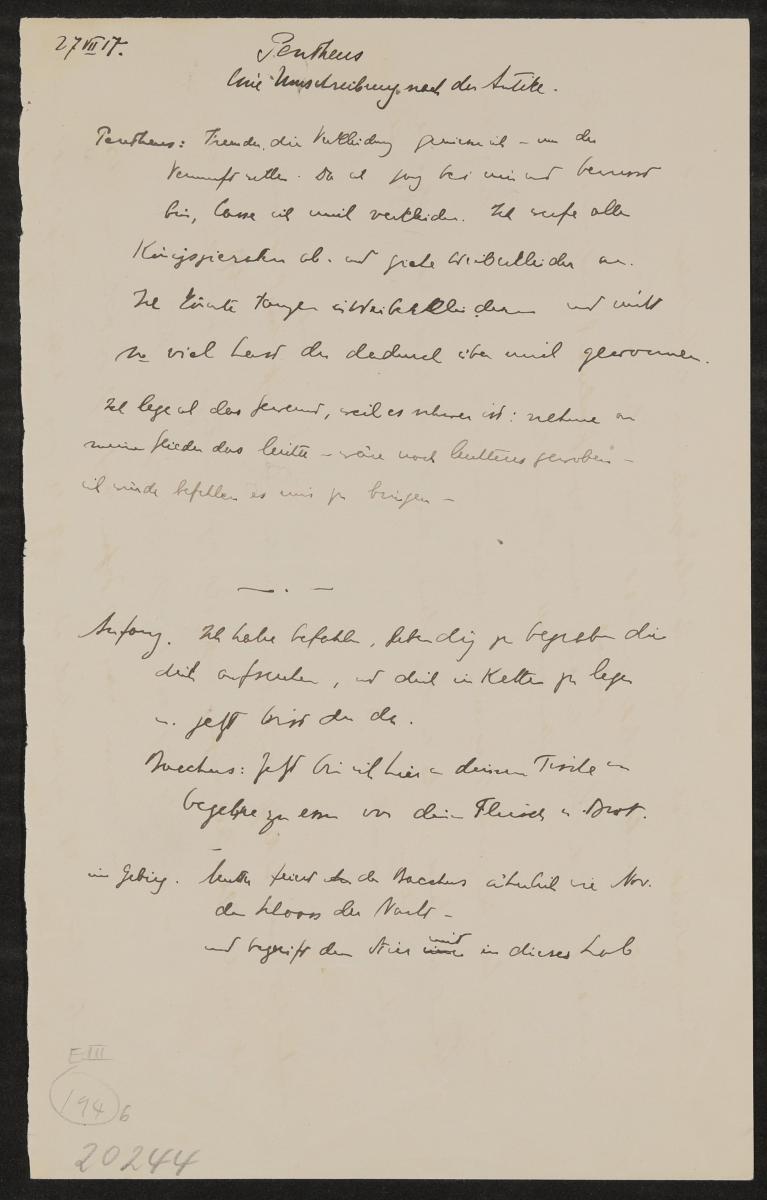 27 VII 17.
Pentheus
Eine Umschreibung nach der Antike.
Pentheus: Fremder, die Verkleidung – um die
Vernunft retten. Da ich bei mir und bewusst
bin, lasse ich mich verkleiden. Ich werfe alle
Königszieraten ab. und ziehe Weiberkleider an.
Ich könnte tanzen in Weiberkleidern und nicht
so viel hast du dadurch über mich gewonnen.
Ich lege ab das Gewand, weil es schwer ist: nehme an
meine Glieder das leichte – wäre noch gewoben –
ich würde befehlen es mir zu bringen –
Anfang. Ich habe befohlen, lebendig zu begraben die
dich aufsuchen, und dich in Ketten zu legen
u. jetzt bist du da.
Bacchus: Jetzt bin ich hier an deinem Tische u
begehre zu essen von dein Fleisch u. Brot.
im Gebirg. Mutter feiert den Bacchus wie Nov.
den Schooss der Nacht –
und begreift den mit in dieses Lob
E III
194 b
20244